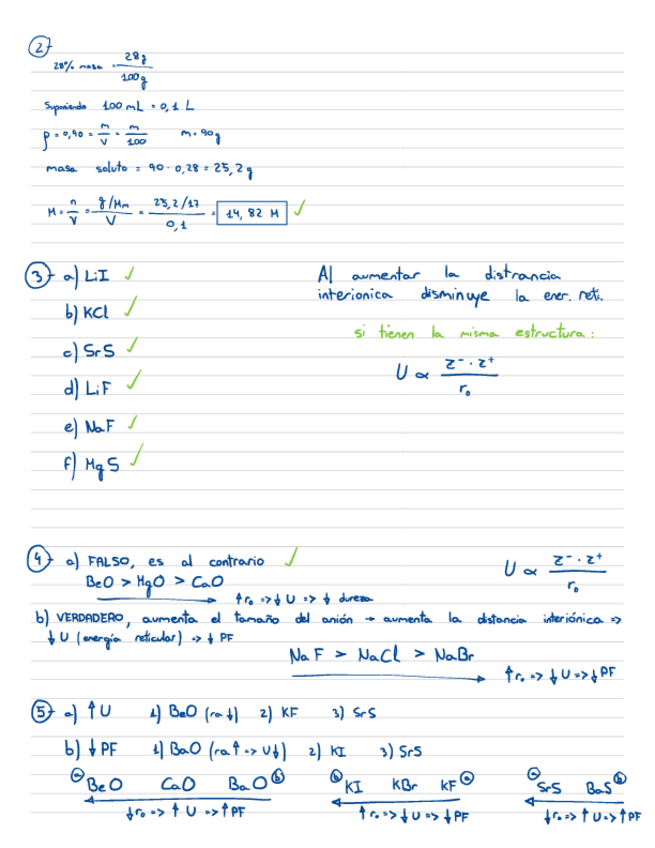 2)
28% masa = 28g / 100g
Suponiendo 100 mL = 0,1 L
ρ = 0,90 = m/V = m/100    m = 90g
masa soluto = 90 · 0,28 = 25,2 g
M = n/V = (g/Mm)/V = (25,2/17)/0,1 = 14,82 M ✓
3) a) LiI ✓
b) KCl ✓
c) SrS ✓
d) LiF ✓
e) NaF ✓
f) MgS ✓
Al aumentar la distrancia
interionica disminuye la ener. reti.
si tienen la misma estructura:
U ∝ z⁻ · z⁺ / r₀
4) a) FALSO, es al contrario ✓
BeO > MgO > CaO
↑r₀ => ↓U => ↓ dureza
U ∝ z⁻ · z⁺ / r₀
b) VERDADERO, aumenta el tamaño del anión → aumenta la distancia interiónica =>
↓U (energía reticular) => ↓ PF
NaF > NaCl > NaBr
↑r₀ => ↓U => ↓PF
5) a) ↑U 1) BeO (ra↓) 2) KF 3) SrS
b) ↓PF 1) BaO (ra↑ => U↓) 2) KI 3) SrS
ⓐ BeO CaO BaO ⓑ    ⓑ KI KBr KF ⓐ    ⓐ SrS BaS ⓑ
↓r₀ => ↑U => ↑PF    ↑r₀ => ↓U => ↓PF    ↓r₀ => ↑U => ↑PF